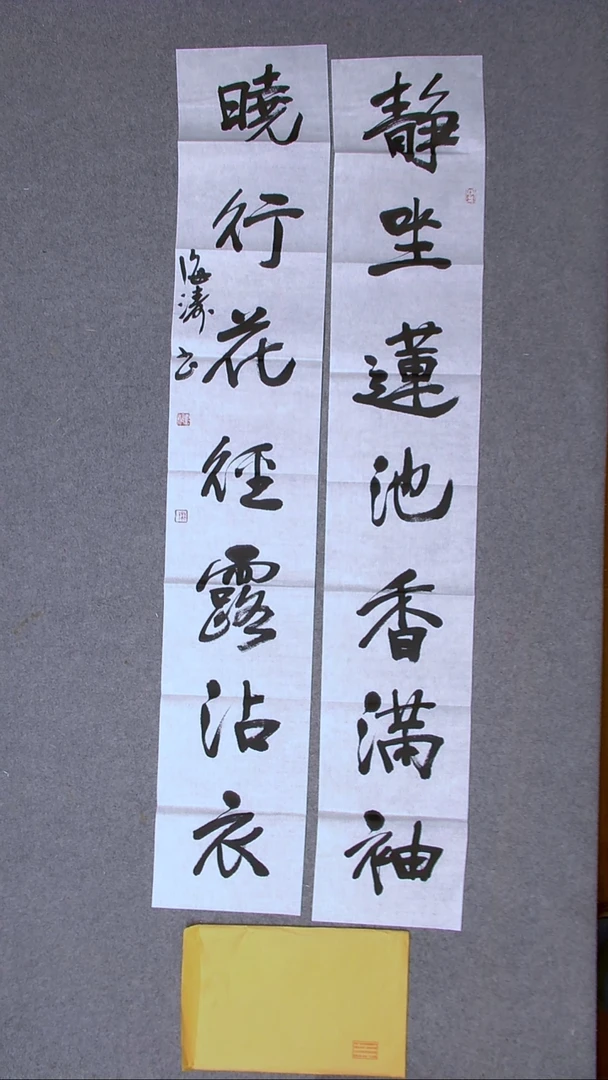 靜坐蓮池香滿袖
曉行花徑露沾衣
海濤書